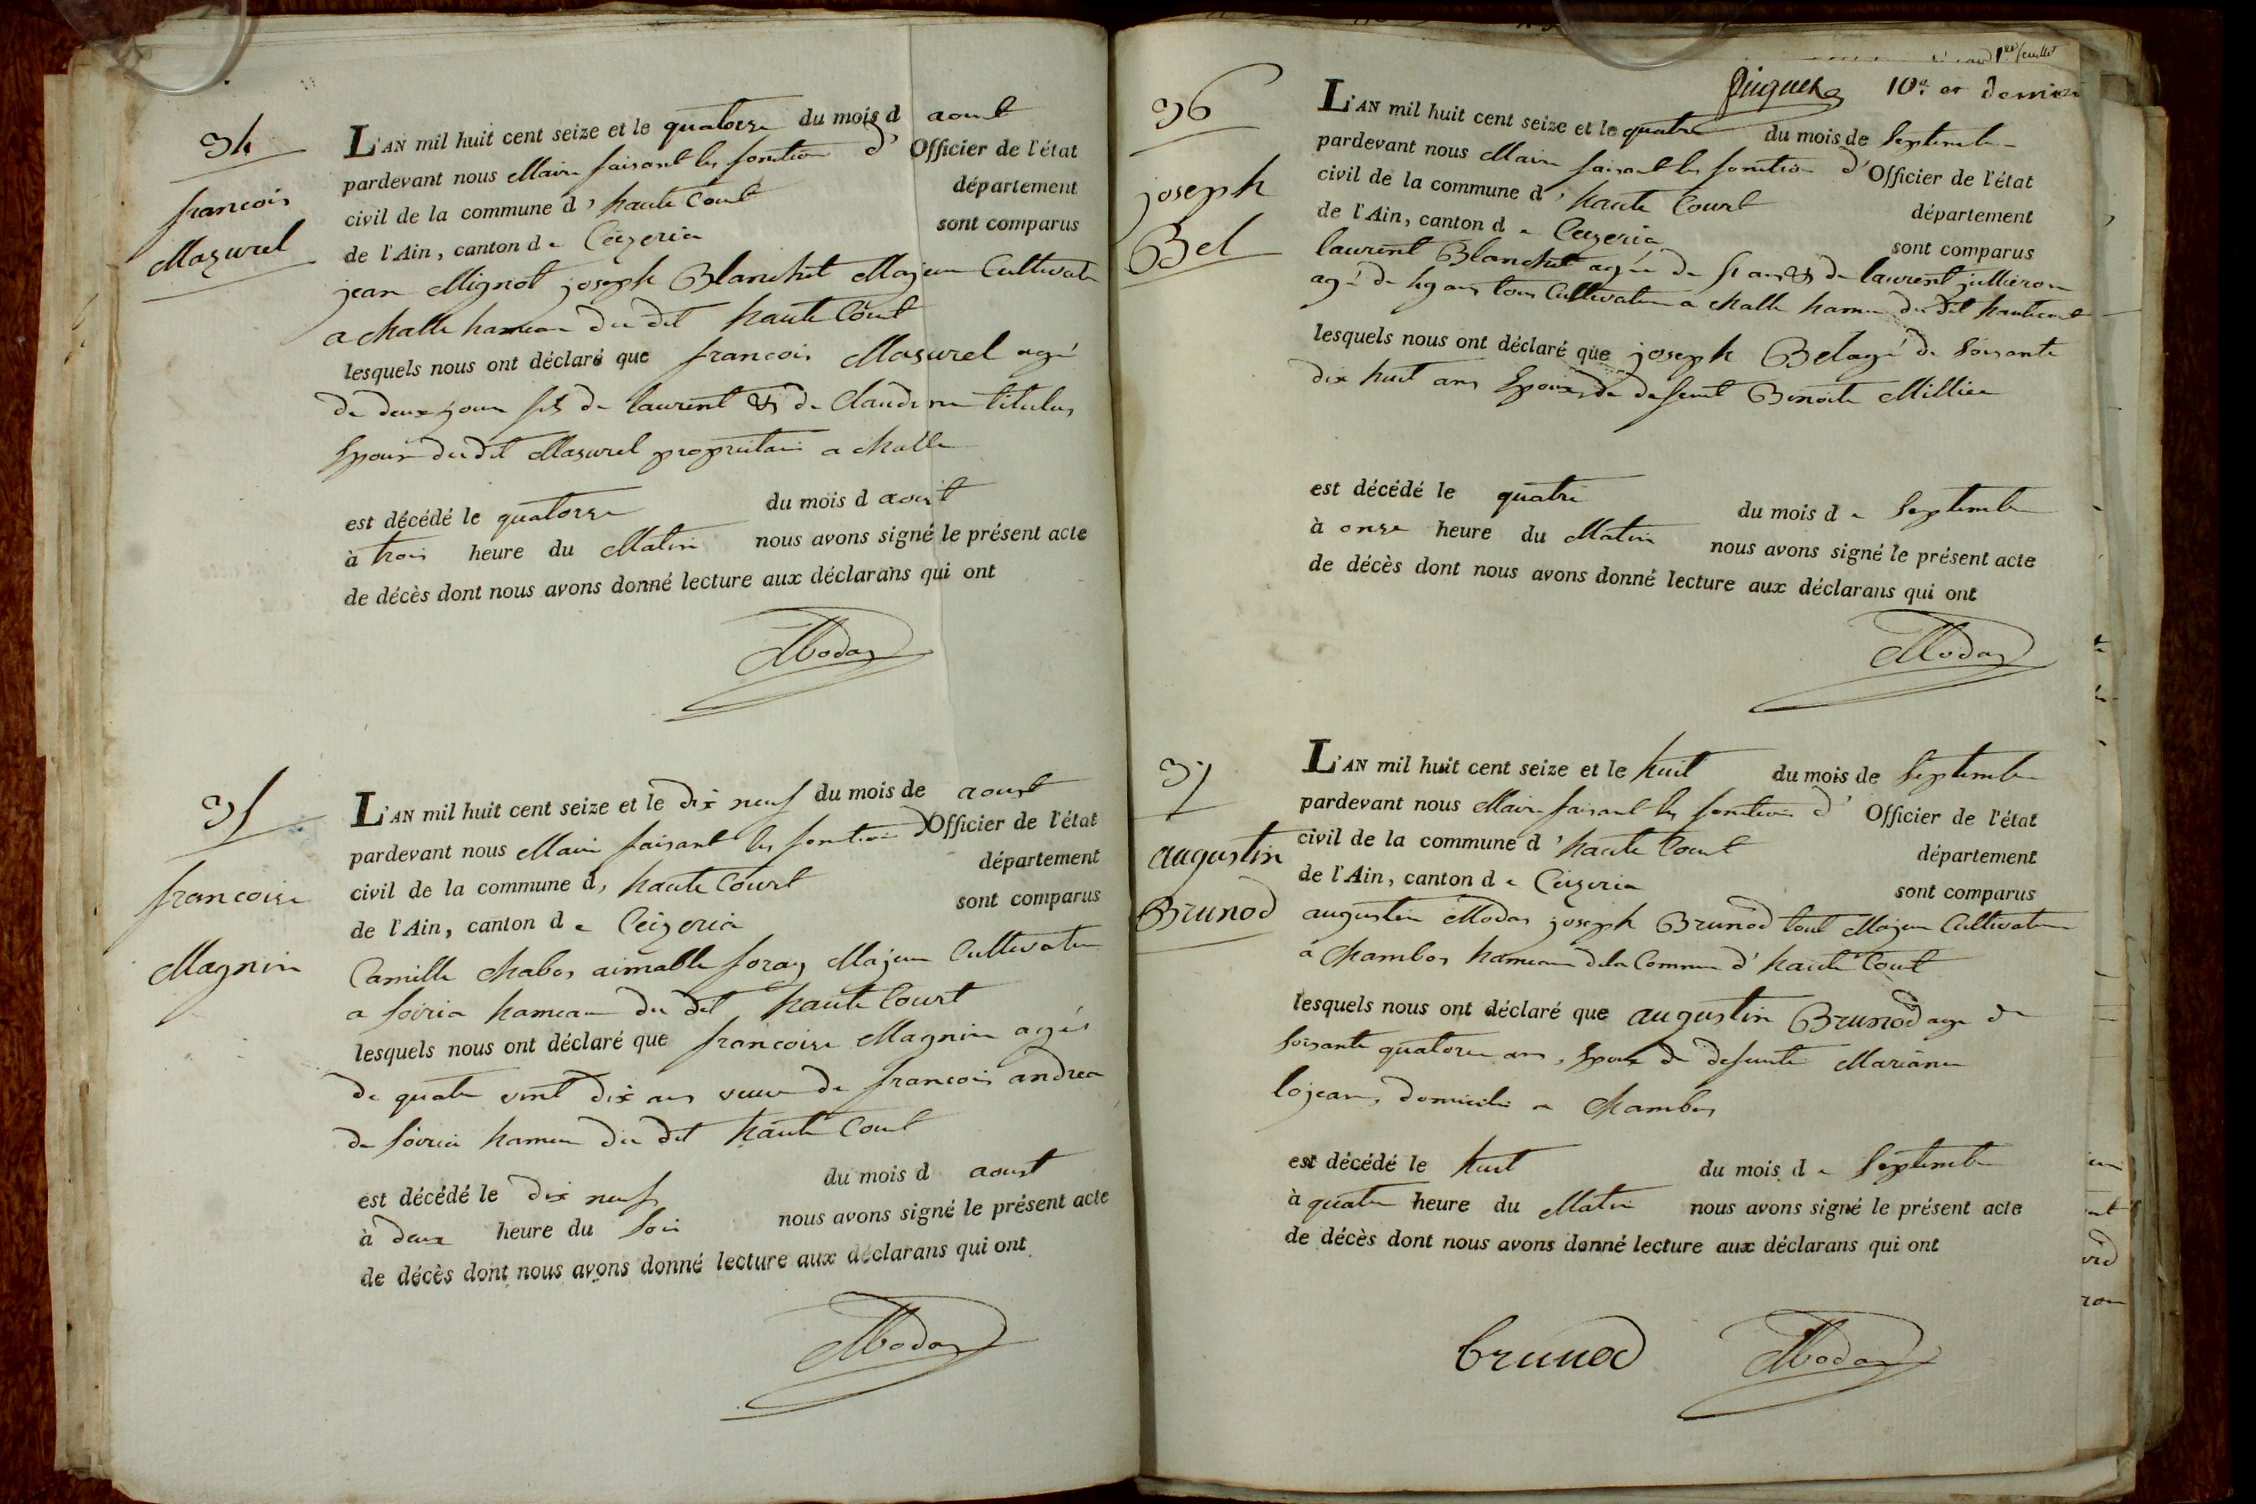 34
francois
Mazurel
L'AN mil huit cent seize et le quatorze du mois d aout
pardevant nous Maire faisant les fonction d' Officier de l'état
civil de la commune d' haute Court département
de l'Ain, canton de Ceizeria sont comparus
jean Mignot joseph Blanchet Majeur Cultivate
a challe hameau du dit haute Court
lesquels nous ont déclaré que francois Mazurel agé
de deux jour fils de laurent & de Claudine
Epoux du dit Mazurel propriétaire a challe
est décédé le quatorze du mois d aout
à trois heure du Matin nous avons signé le présent acte
de décès dont nous avons donné lecture aux déclarans qui ont
Modas
35
francoise
Magnin
L'AN mil huit cent seize et le dix neuf du mois de aoust
pardevant nous Maire faisant les fonction d' Officier de l'état
civil de la commune d, haute Court département
de l'Ain, canton de Ceizeria sont comparus
Camille Chabos aimable foray Majeur Cultivateur
a soiria hameau du dit haute Court
lesquels nous ont déclaré que francoise Magnin agés
de quatre vint dix ans veuve de francois andrea
de soiria hameau du dit haute Court
est décédé le dix neuf du mois d aoust
à deux heure du soir nous avons signé le présent acte
de décès dont nous avons donné lecture aux déclarans qui ont
Modas
10e et dernier
36
joseph
Bel
L'AN mil huit cent seize et le quatre du mois de Septembre
pardevant nous Maire faisant les fonction d' Officier de l'état
civil de la commune d' haute Court département
de l'Ain, canton de Ceizeria sont comparus
laurent Blanchet agée de 51 ans & de laurent jullieron
agé de 49 ans tous Cultivateur a challe hameau du dit hautecourt
lesquels nous ont déclaré que joseph Bel agé de soixante
dix huit ans Epoux de defeunt Benoite Millier
est décédé le quatre du mois de Septembre
à onze heure du Matin nous avons signé le présent acte
de décès dont nous avons donné lecture aux déclarans qui ont
Modas
37
augustin
Brunod
L'AN mil huit cent seize et le huit du mois de Septembre
pardevant nous Maire faisant les fonction d' Officier de l'état
civil de la commune d' haute Court département
de l'Ain, canton de Ceizeria sont comparus
augustin Modas joseph Brunod tout Majeur Cultivateur
á Chambos hameau de la Commune d' haute Court
lesquels nous ont déclaré que augustin Brunod age de
soixante quatorze ans, Epoux de defeunte Marianne
lojean, domicilie a Chambos
est décédé le huit du mois de Septembre
à quatre heure du Matin nous avons signé le présent acte
de décès dont nous avons donné lecture aux déclarans qui ont
brunod Modas